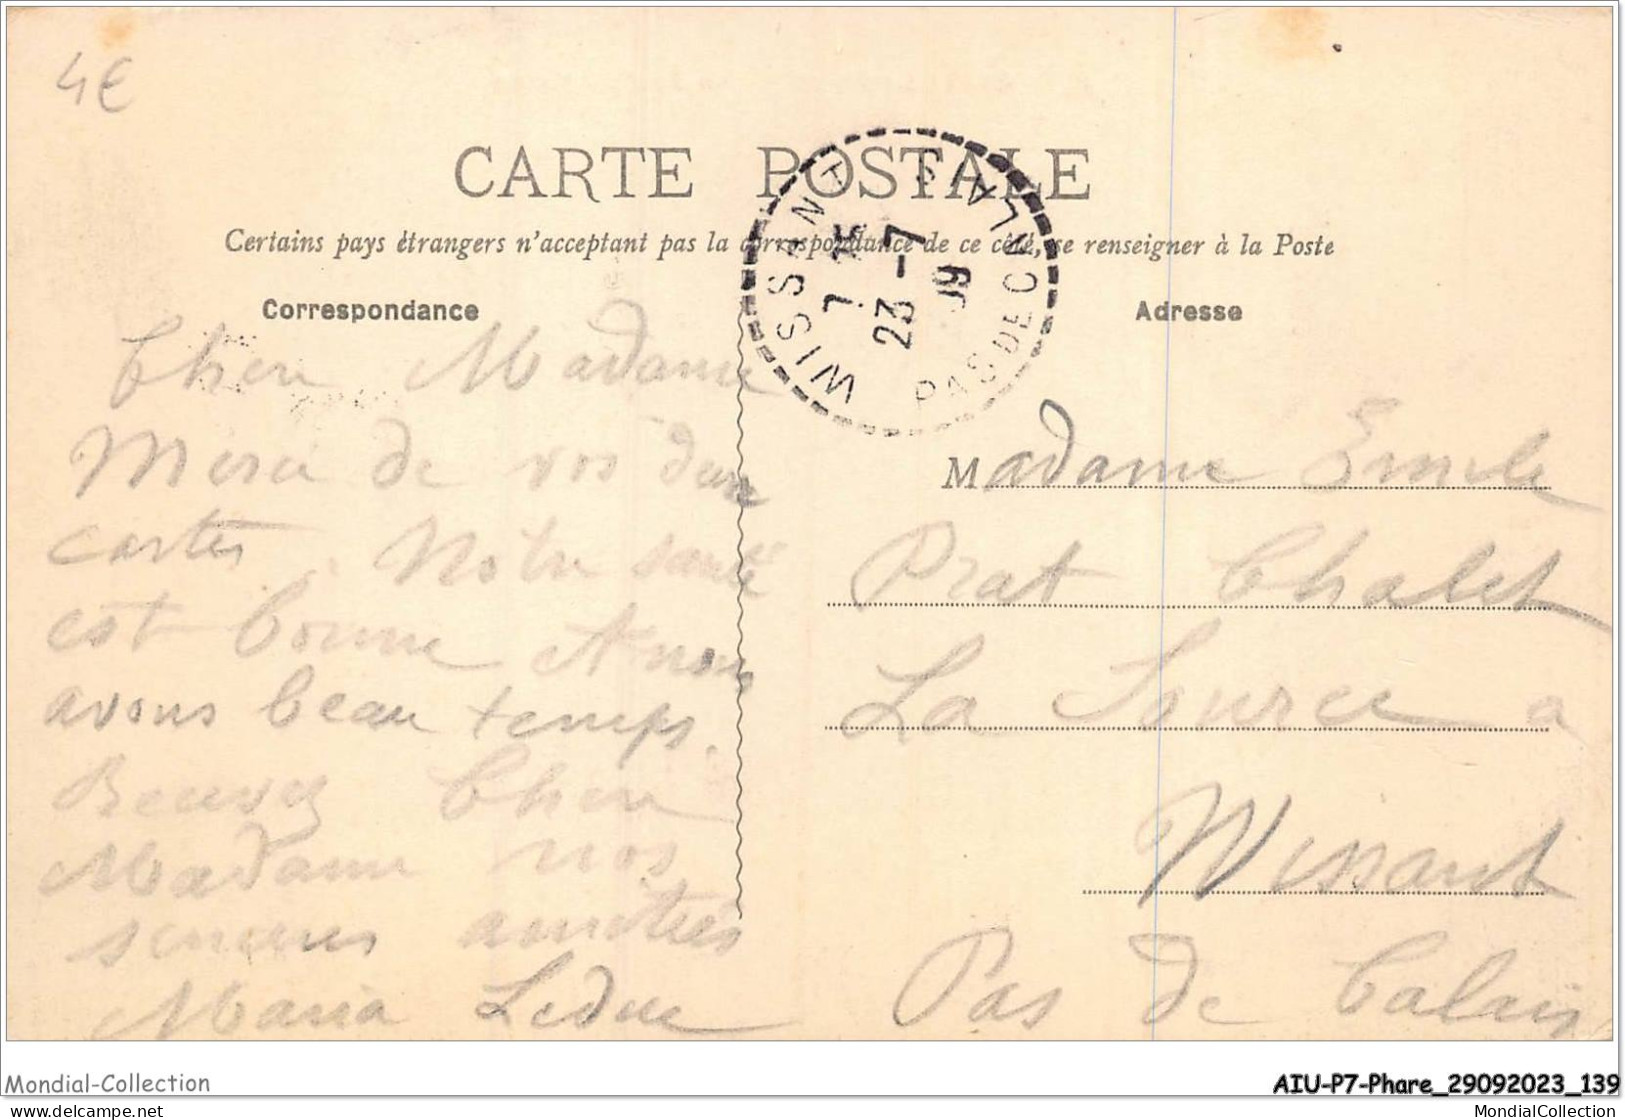 4€
CARTE POSTALE
Certains pays étrangers n'acceptant pas la correspondance de ce côté, se renseigner à la Poste
WISSANT PAS DE CALAIS
7 15
23 -7
09
Correspondance
Chere Madame
Merci de vos deux
cartes. Notre santé
est bonne et nous
avons beau temps.
Recevez Chere
Madame nos
sinceres amitiés
Maria Leduc
Adresse
Madame Emile
Prat Chalet
La Source a
Wissant
Pas de Calais
Mondial-Collection
AIU-P7-Phare_29092023_139
delcampe.net
MondialCollection